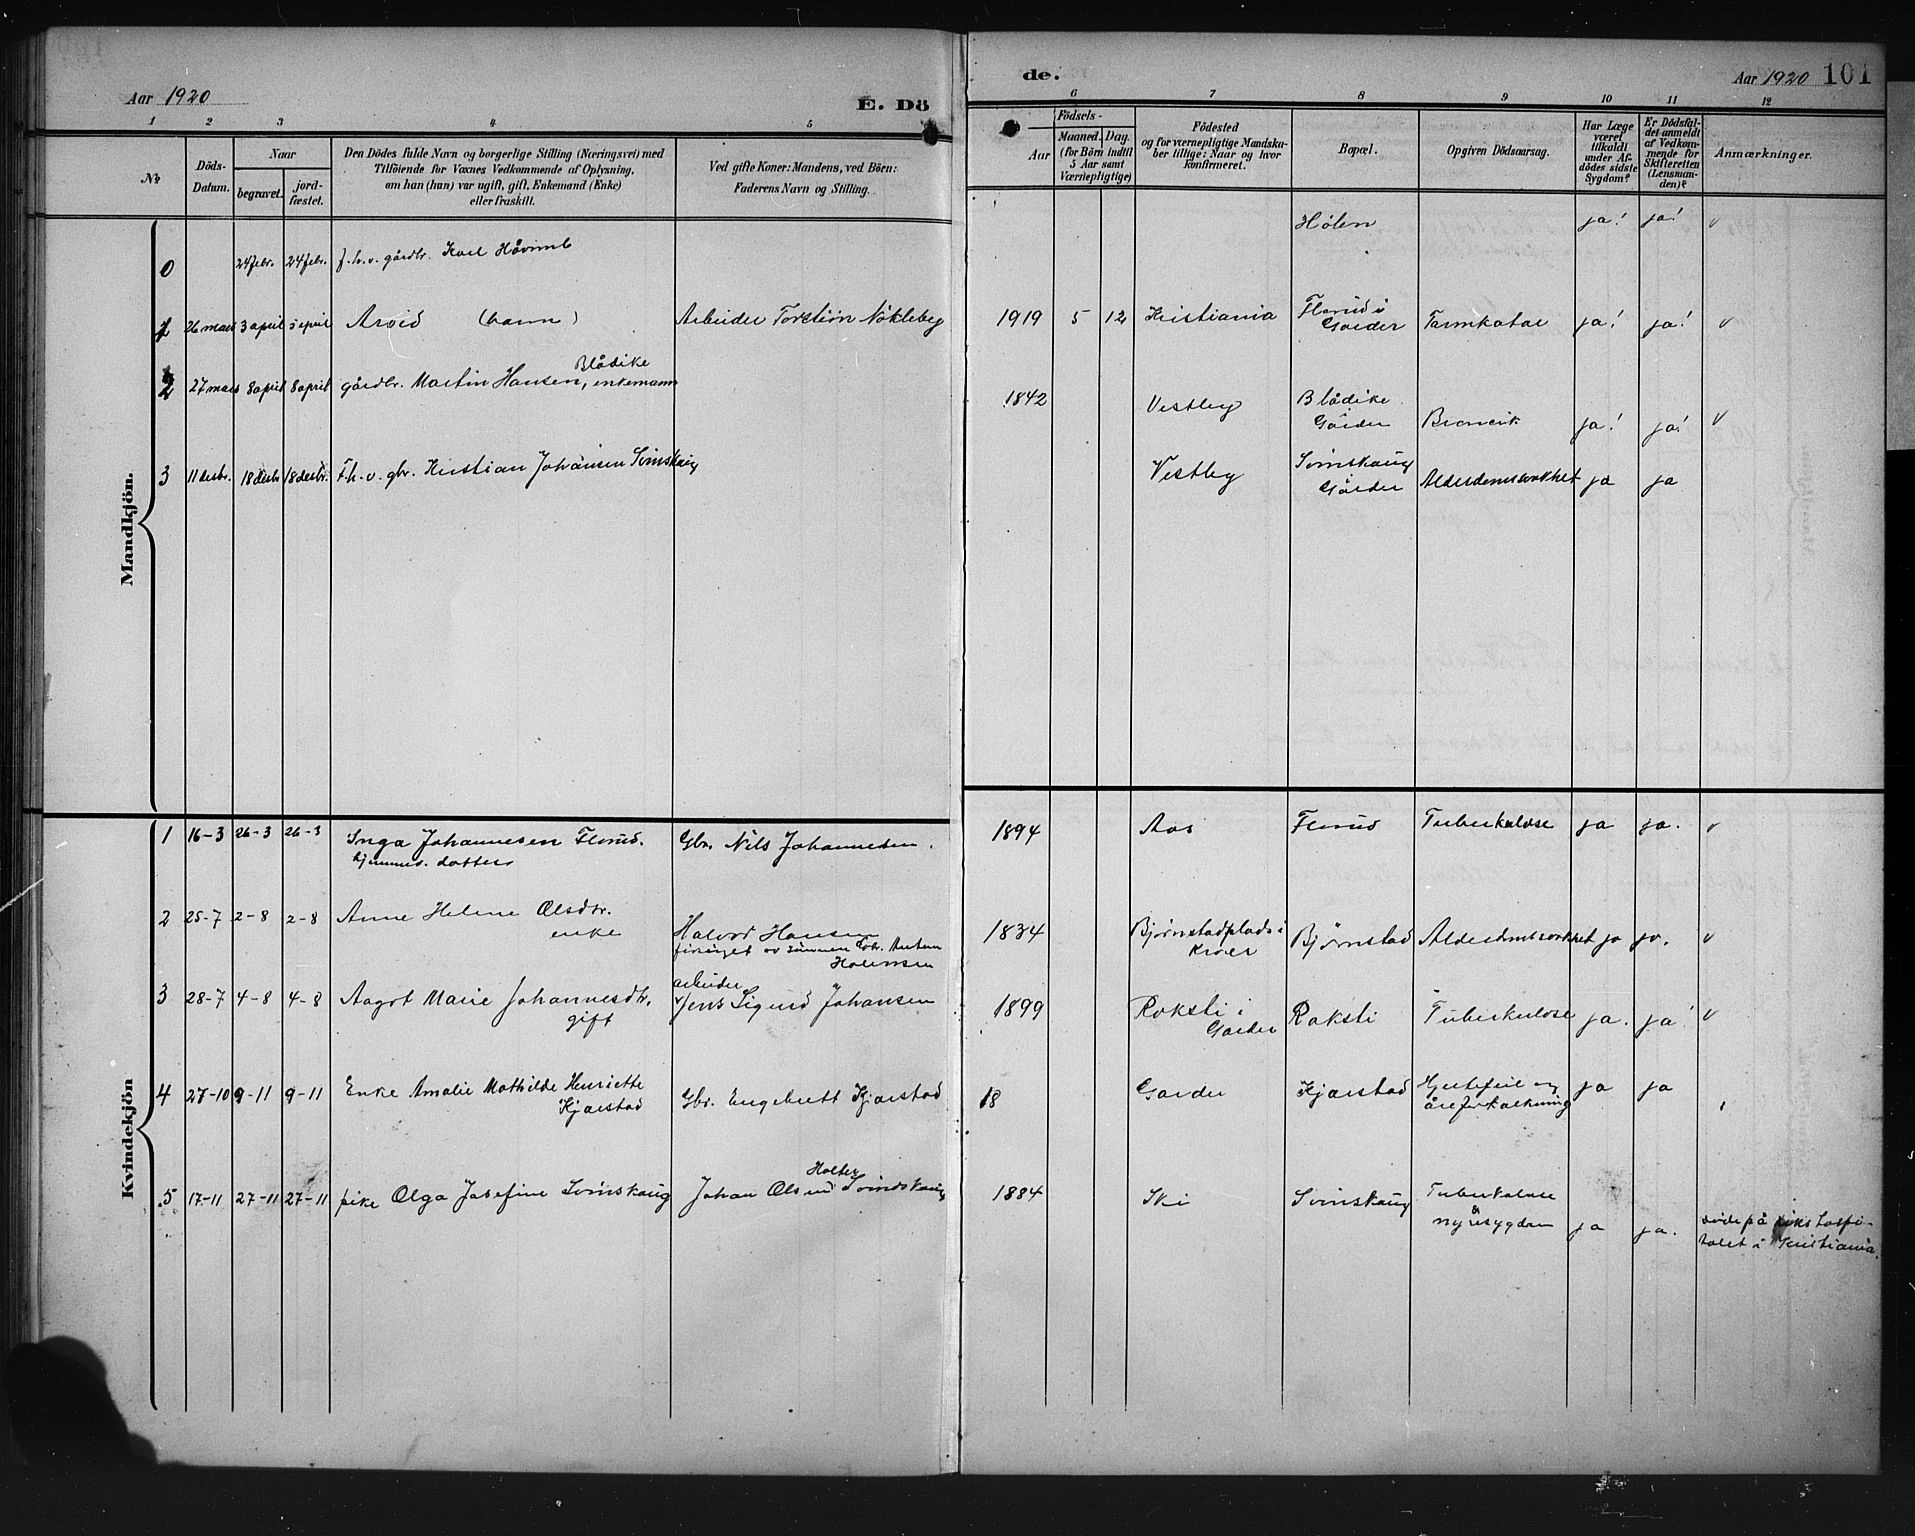 Aar 1920
E. Dö
de.
Aar 1920 101
1 2 3 4 5
6 7 8 9 10 11 12
No
Döds-
Datum.
Naar
begravet.
jord-
fæstet.
Den Dödes fulde Navn og borgerlige Stilling (Næringsvei) med
Tilföiende for Voxnes Vedkommende af Oplysning,
om han (hun) var ugift, gift, Enkemand (Enke)
eller fraskilt.
Ved gifte Koner: Mandens, ved Börn:
Faderens Navn og Stilling.
Födsels-
Aar
Maaned. Dag.
(for Börn indtil
5 Aar samt
Værnepligtige)
Födested
og for værnepligtige Mandsku-
ber tillige: Naar og hvor
konfirmeret.
Bopæl.
Opgiven Dödsaarsag.
Har Læge
været
tilkaldt
under Af-
dödes sidste
Sygdom?
Er Dödsfal-
det anmeldt
af Vedkom-
mende for
Skifteretten
(Lensman-
den)?
Anmærkninger.
Mandkjön.
0 24 febr. 24 febr. f.h.v. gårdbr. Karl Håvimb Hölen ja! ja! v
1 26 mars 3 april 3 april Arvid (barn) Arbeider Torstein Nökleby 1919 5 12 Kristiania Florud i
Gårder Tarmkatar ja! ja! v
2 27 mars 8 april 8 april gårdbr. Martin Hansen Blådike, enkemann 1842 Vestby Blådike
i
Gårder ja! ja! v
3 11 desbr. 18 desbr 18 desbr. F.h.v. gbr. Kristian Johansen Svinskaug Vestby Svinskaug
Gårder Alderdomssvakhet ja ja
Kvindekjön
1 16-3 26-3 26-3 Inga Johannesen Florud.
hjemmev. datter Gbr. Nils Johannesen. 1894 Aas Florud Tuberkulose ja ja. v
2 25-7 2-8 2-8 Anne Helene Olsdtr.
enke Halvor Hansen
forsörget av sönnen Gbr. Anton
Halvorsen 1834 Bjørnstadplads i
Kroer Bjørnstad Alderdomssvakhet ja ja. v
3 28-7 4-8 4-8 Aagot Marie Johannesdtr.
gift arbeider
Jens Sigurd Johansen 1899 Roksti i
Gårder Roksti Tuberkulose ja. ja! v
4 27-10 9-11 9-11 Enke Amalie Mathilde Henriette
Kjærstad Gbr. Engebrett Kjærstad 18 Garder Kjærstad Hjertefeil og
åreforkalkning ja ja
5 17-11 27-11 27-11 pike Olga Josefine Svinskaug Johan Olsen Holter Svindskaug 1884 Ski Svinskaug Tuberkulose
å
nyresygdom ja ja. döde på rikshospi-
talet i Kristiania.